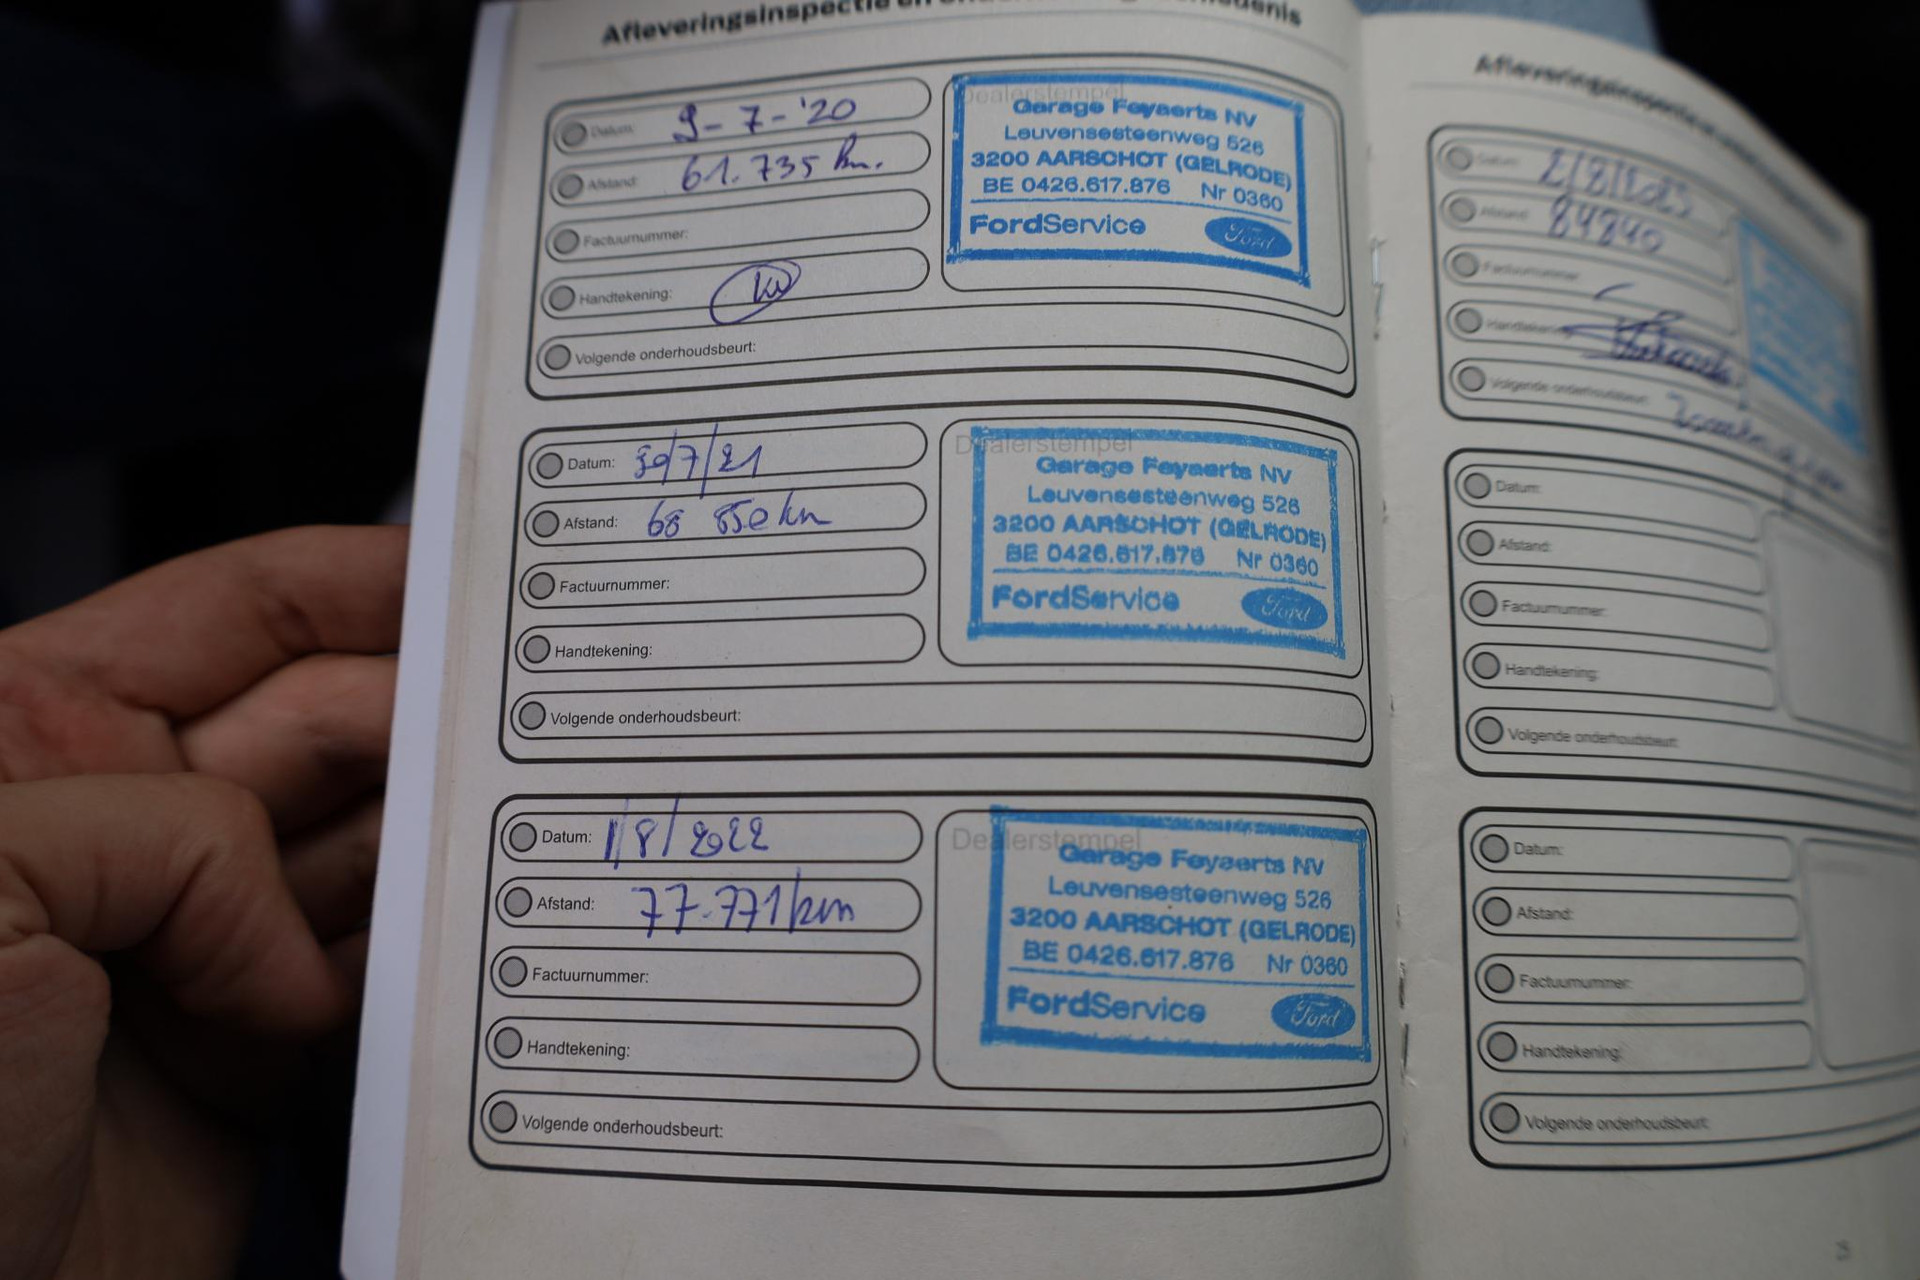 Afleveringsinspectie en
Datum: 9-7-'20
Afstand: 61.735 km.
Factuurnummer:
Handtekening:
Volgende onderhoudsbeurt:
Dealerstempel
Garage Feyaerts NV
Leuvensesteenweg 526
3200 AARSCHOT (GELRODE)
BE 0426.617.876 Nr 0360
FordService Ford
Datum: 30/7/21
Afstand: 68 850 km
Factuurnummer:
Handtekening:
Volgende onderhoudsbeurt:
Dealerstempel
Garage Feyaerts NV
Leuvensesteenweg 526
3200 AARSCHOT (GELRODE)
BE 0426.617.876 Nr 0360
FordService Ford
Datum: 1/8/2022
Afstand: 77.771 km
Factuurnummer:
Handtekening:
Volgende onderhoudsbeurt:
Dealerstempel
Garage Feyaerts NV
Leuvensesteenweg 526
3200 AARSCHOT (GELRODE)
BE 0426.617.876 Nr 0360
FordService Ford
Afleveringsinspectie
Datum: 2/8/2023
Afstand: 84840
Factuurnummer:
Handtekening:
Volgende onderhoudsbeurt:
Datum:
Afstand:
Factuurnummer:
Handtekening:
Volgende onderhoudsbeurt:
Datum:
Afstand:
Factuurnummer:
Handtekening:
Volgende onderhoudsbeurt: